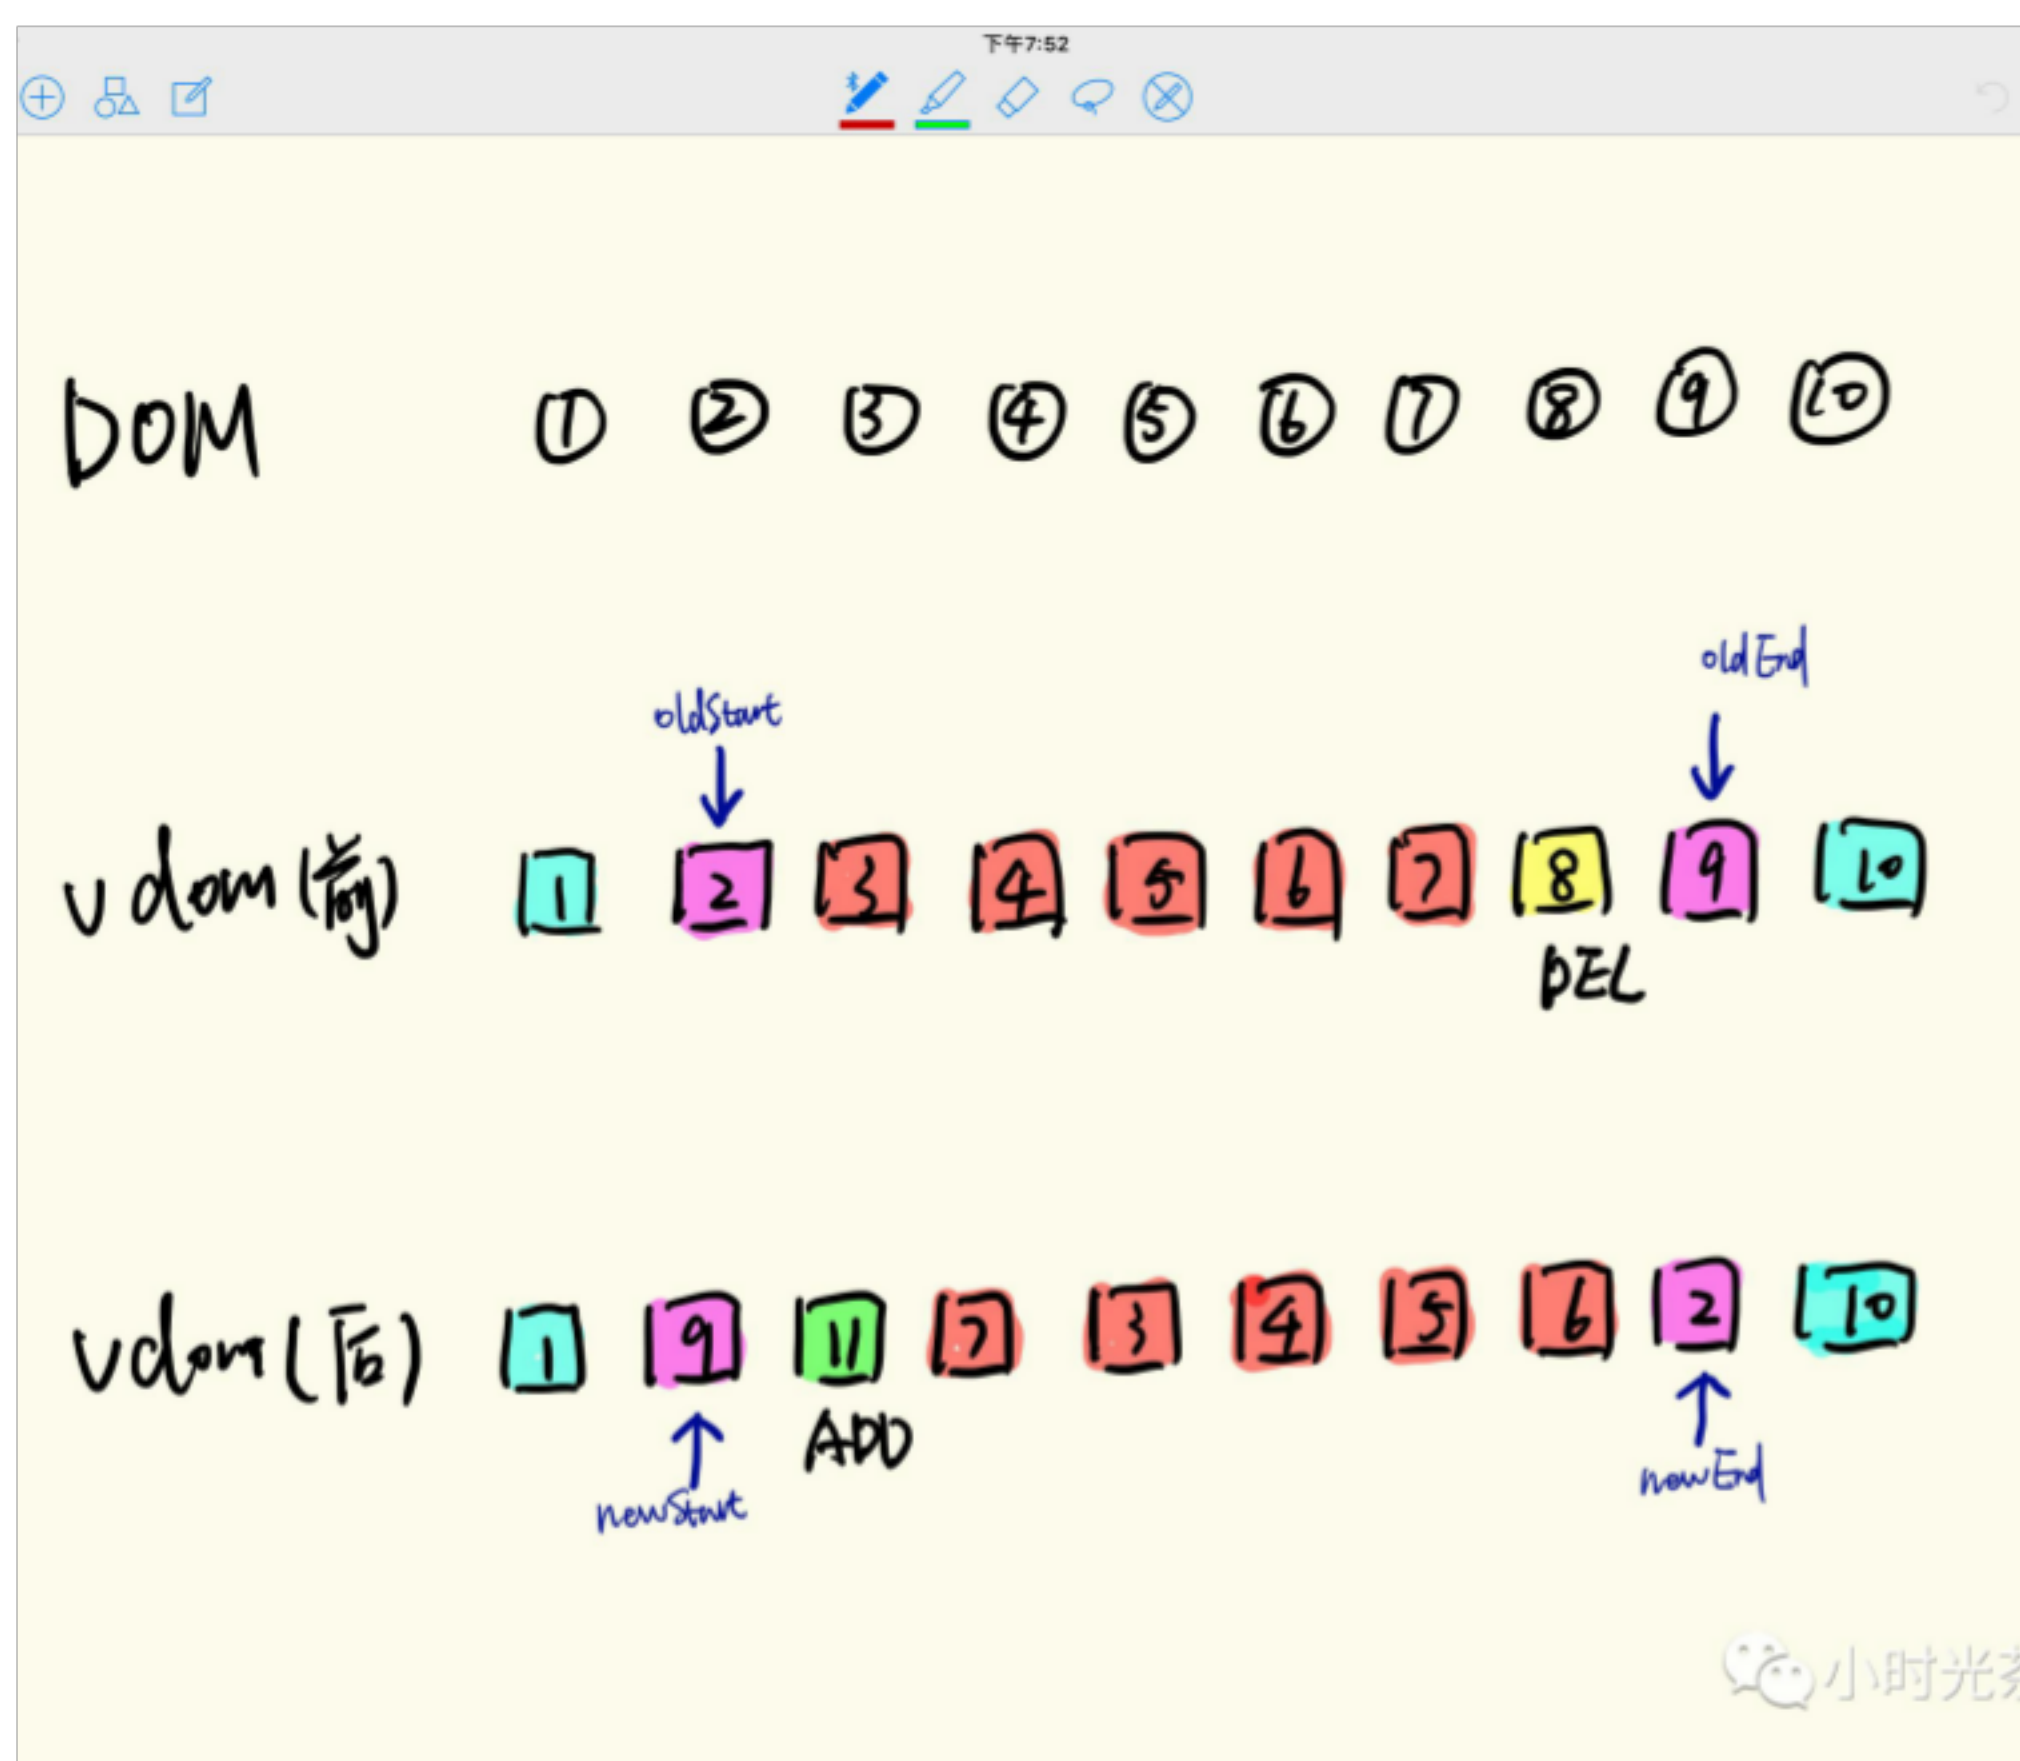 下午7:52
DOM ① ② ③ ④ ⑤ ⑥ ⑦ ⑧ ⑨ ⑩
oldStart oldEnd
vdom(前) 1 2 3 4 5 6 7 8 9 10
DEL
vdom(后) 1 9 11 7 3 4 5 6 2 10
ADD
newStart newEnd
小时光茶